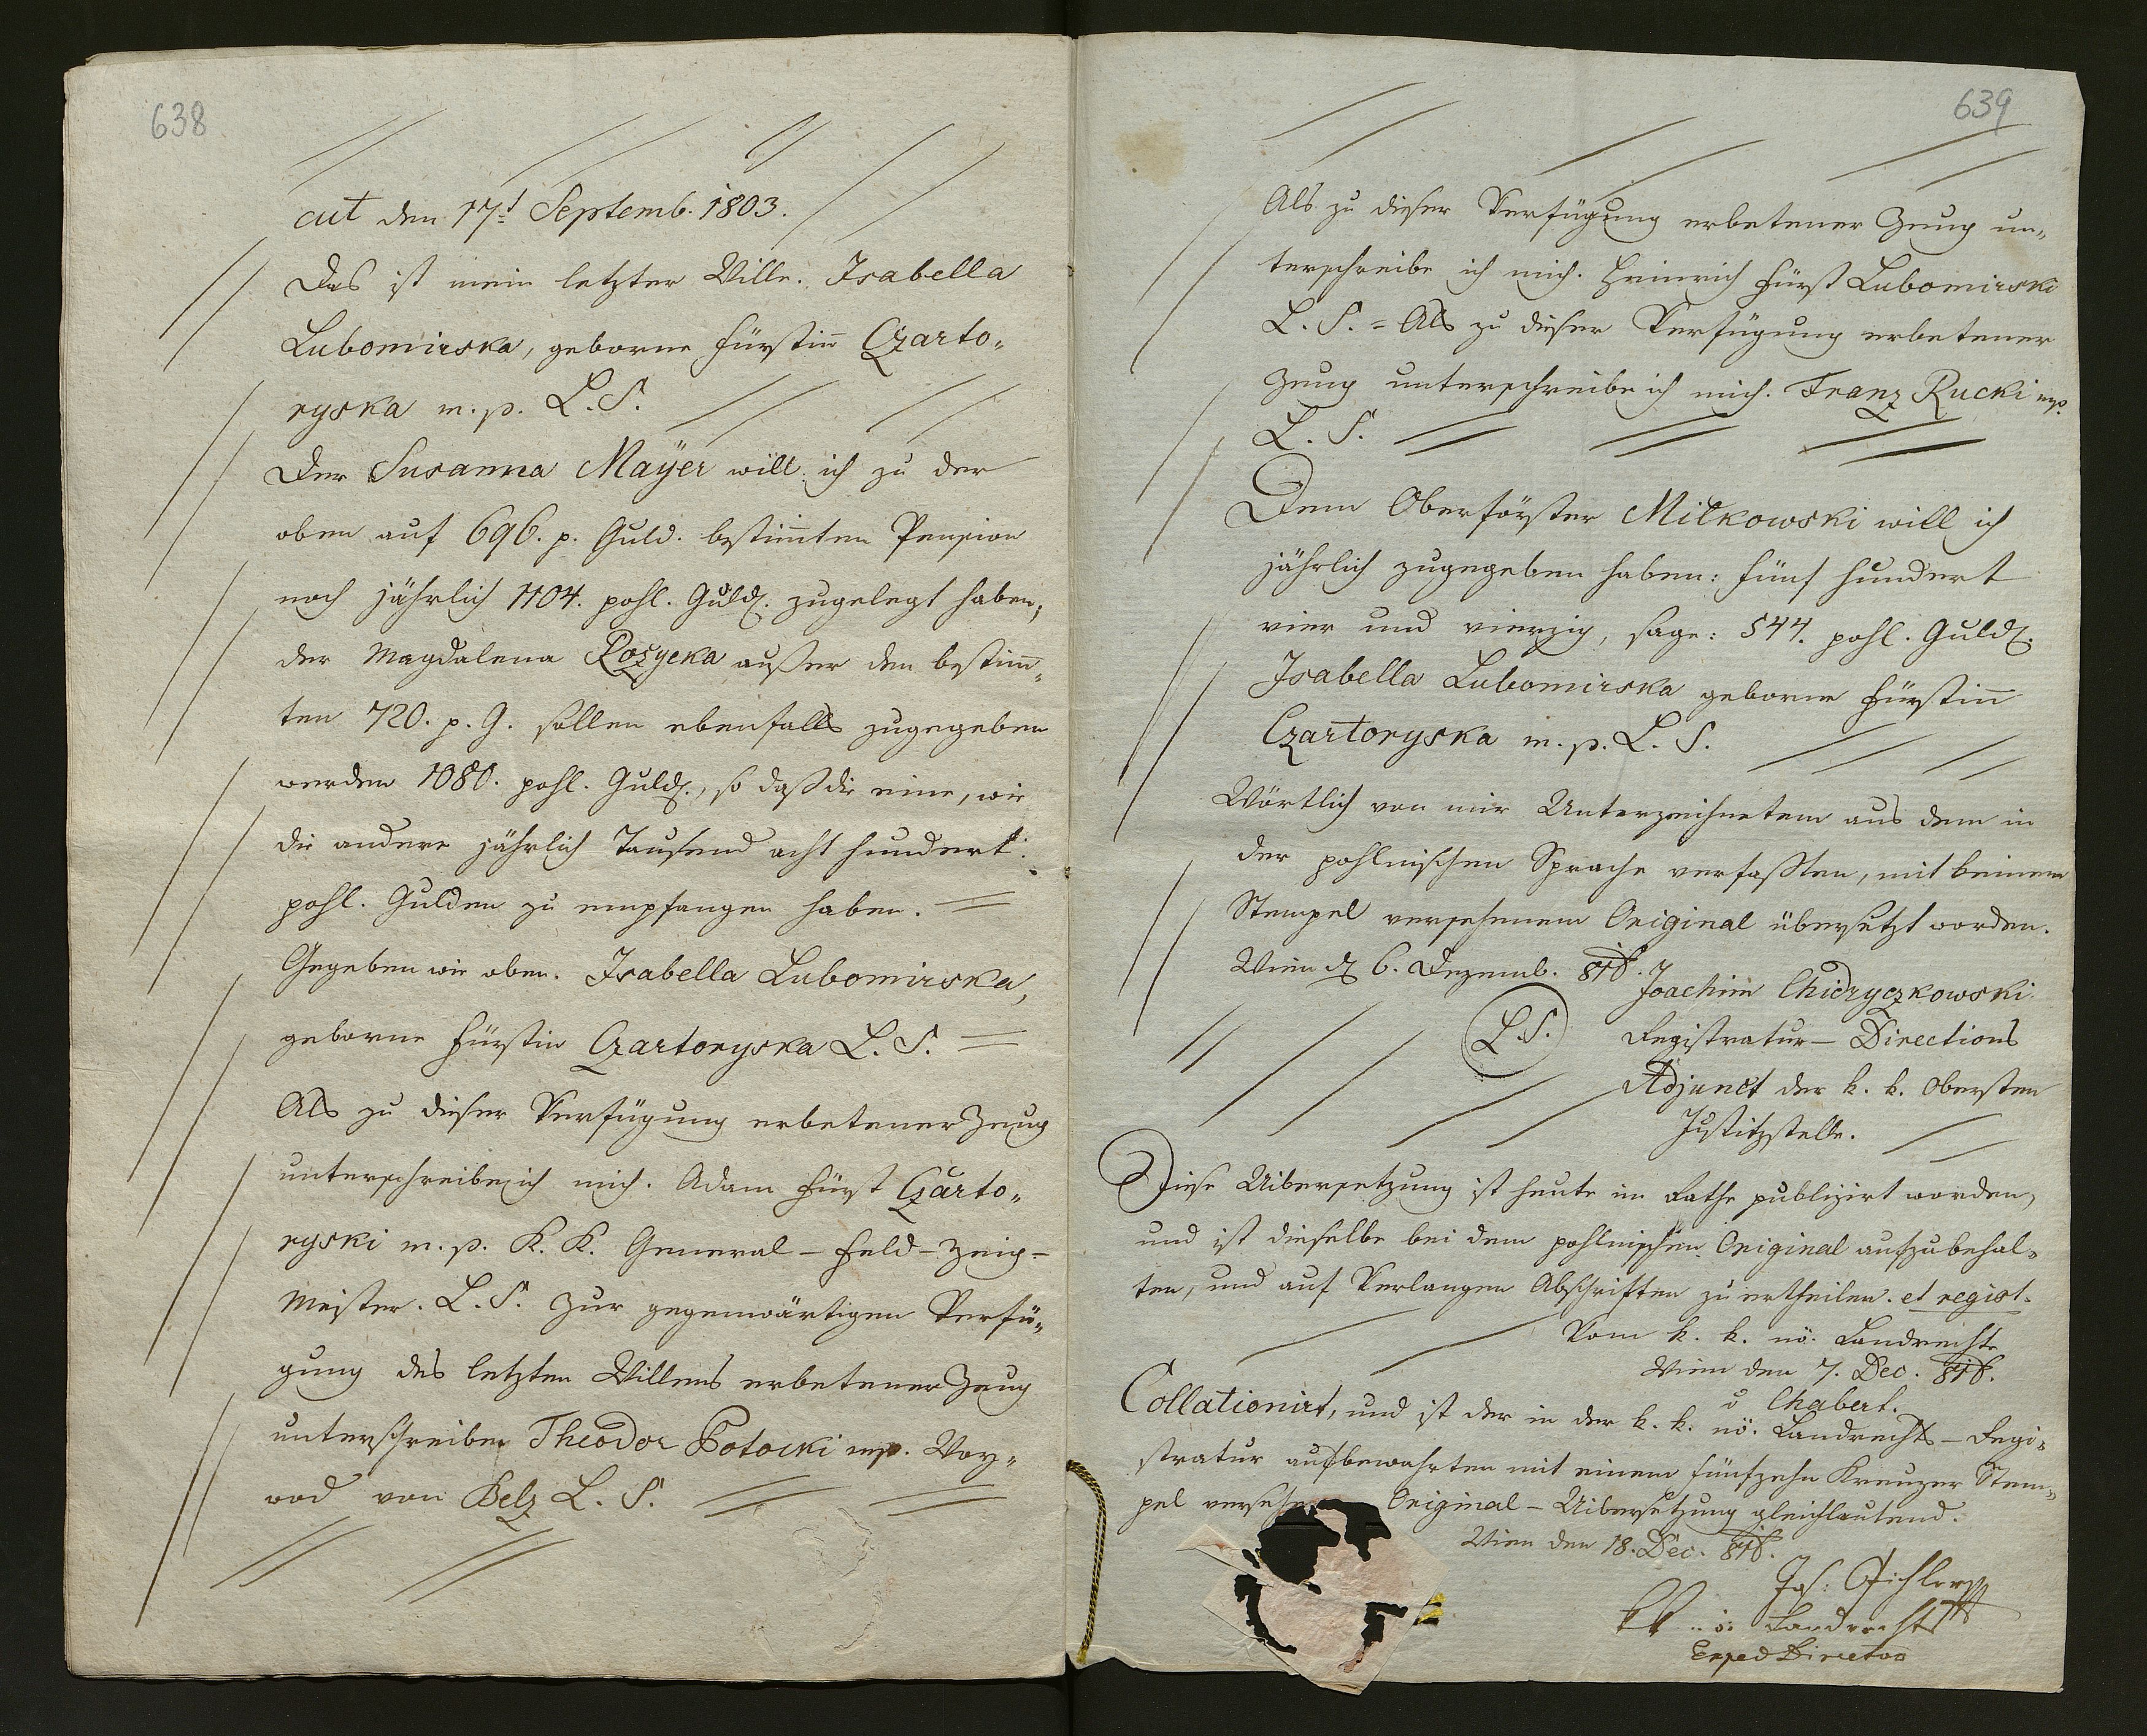 638
cut den 17t Septemb. 1803.
Das ist mein letzter Wille. Isabella
Lubomirska, geborne Fürstin̄ Czarto-
ryska m. p. L. S.
Der Susanna Mayer will ich zu der
oben auf 696. p. Guld. bestim̄ten Pension
noch jährlich 1104. pohl. Guld. zugelegt haben;
der Magdalena außer den bestim̄-
ten 720. p. G. sollen ebenfalls zugegeben
werden 1080. pohl. Guld., so daß die eine, wie
die andere jährlich Tausend acht hundert
pohl. Gulden zu empfangen haben. =
Gegeben wie oben. Isabella Lubomirska,
geborne Fürstin Czartoryska L. S. =
Als zu dieser Verfügung erbetener Zeug
unterschreibe ich mich. Adam Fürst Czarto-
ryski m. p. K. K. General-Feld-Zeug-
Meister. L. S. Zur gegenwärtigen Verfü-
gung des letzten Willens erbetener Zeug
unterschreibe Theodor Potocki mp. Woy-
wod von Belz L. S.
639
Als zu dieser Verfügung erbetener Zeug un-
terschreibe ich mich. Heinrich Fürst Lubomirski
L. S. = Als zu dieser Verfügung erbetener
Zeug unterschreibe ich mich. Franz Rucki mp.
L. S.
Dem Oberförster Miłkowski will ich
jährlich zugegeben haben: fünf hundert
vier und vierzig, sage: 544. pohl. Guld.
Isabella Lubomirska geborne Fürstin̄
Czartoryska m. p. L. S.
Wörtlich von mir Unterzeichnetem aus dem in
der pohlnischen Sprache verfaßten, mit keinem
Stempel versehenem Original übersetzt worden.
Wien d. 6. Dezemb. 816.
Joachim Chidzyczkowski
L. S.
Registratur-Directions
Adjunct der k. k. Obersten
Justitzstelle.
Diese Uibersetzung ist heute im Rathe publizirt worden,
und ist dieselbe bei dem pohlnischen Original aufzubehal-
ten, und auf Verlangen Abschriften zu ertheilen. et regist.
Vom k. k. nö. Landrechte
Wien den 7. Dec. 816.
Chabert.
Collationirt, und ist der in der k. k. nö. Landrechts-Regi-
stratur aufbewahrten mit einem fünfzehn Kreuzer Stem-
pel versehe Original-Uibersetzung gleichlautend.
Wien den 18. Dec. 816.
Jos: Pichler
Landrechts
Exped Director